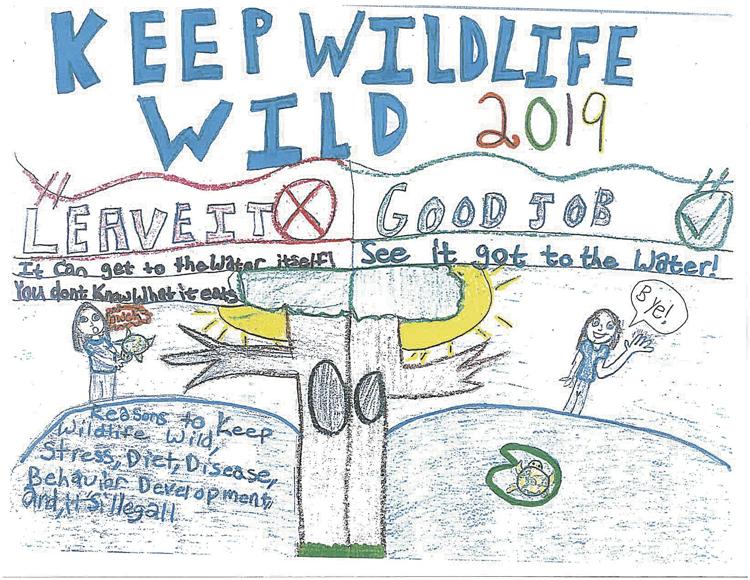 KEEP WILDLIFE
WILD 2019
!! LEAVE IT
It can get to the water itself!
You dont know what it eats
!! GOOD JOB
See it got to the water!
Bye!
Reasons to keep
Wildlife Wild,
Stress, Diet, Disease,
Behavior Development,
and, it's illegal!